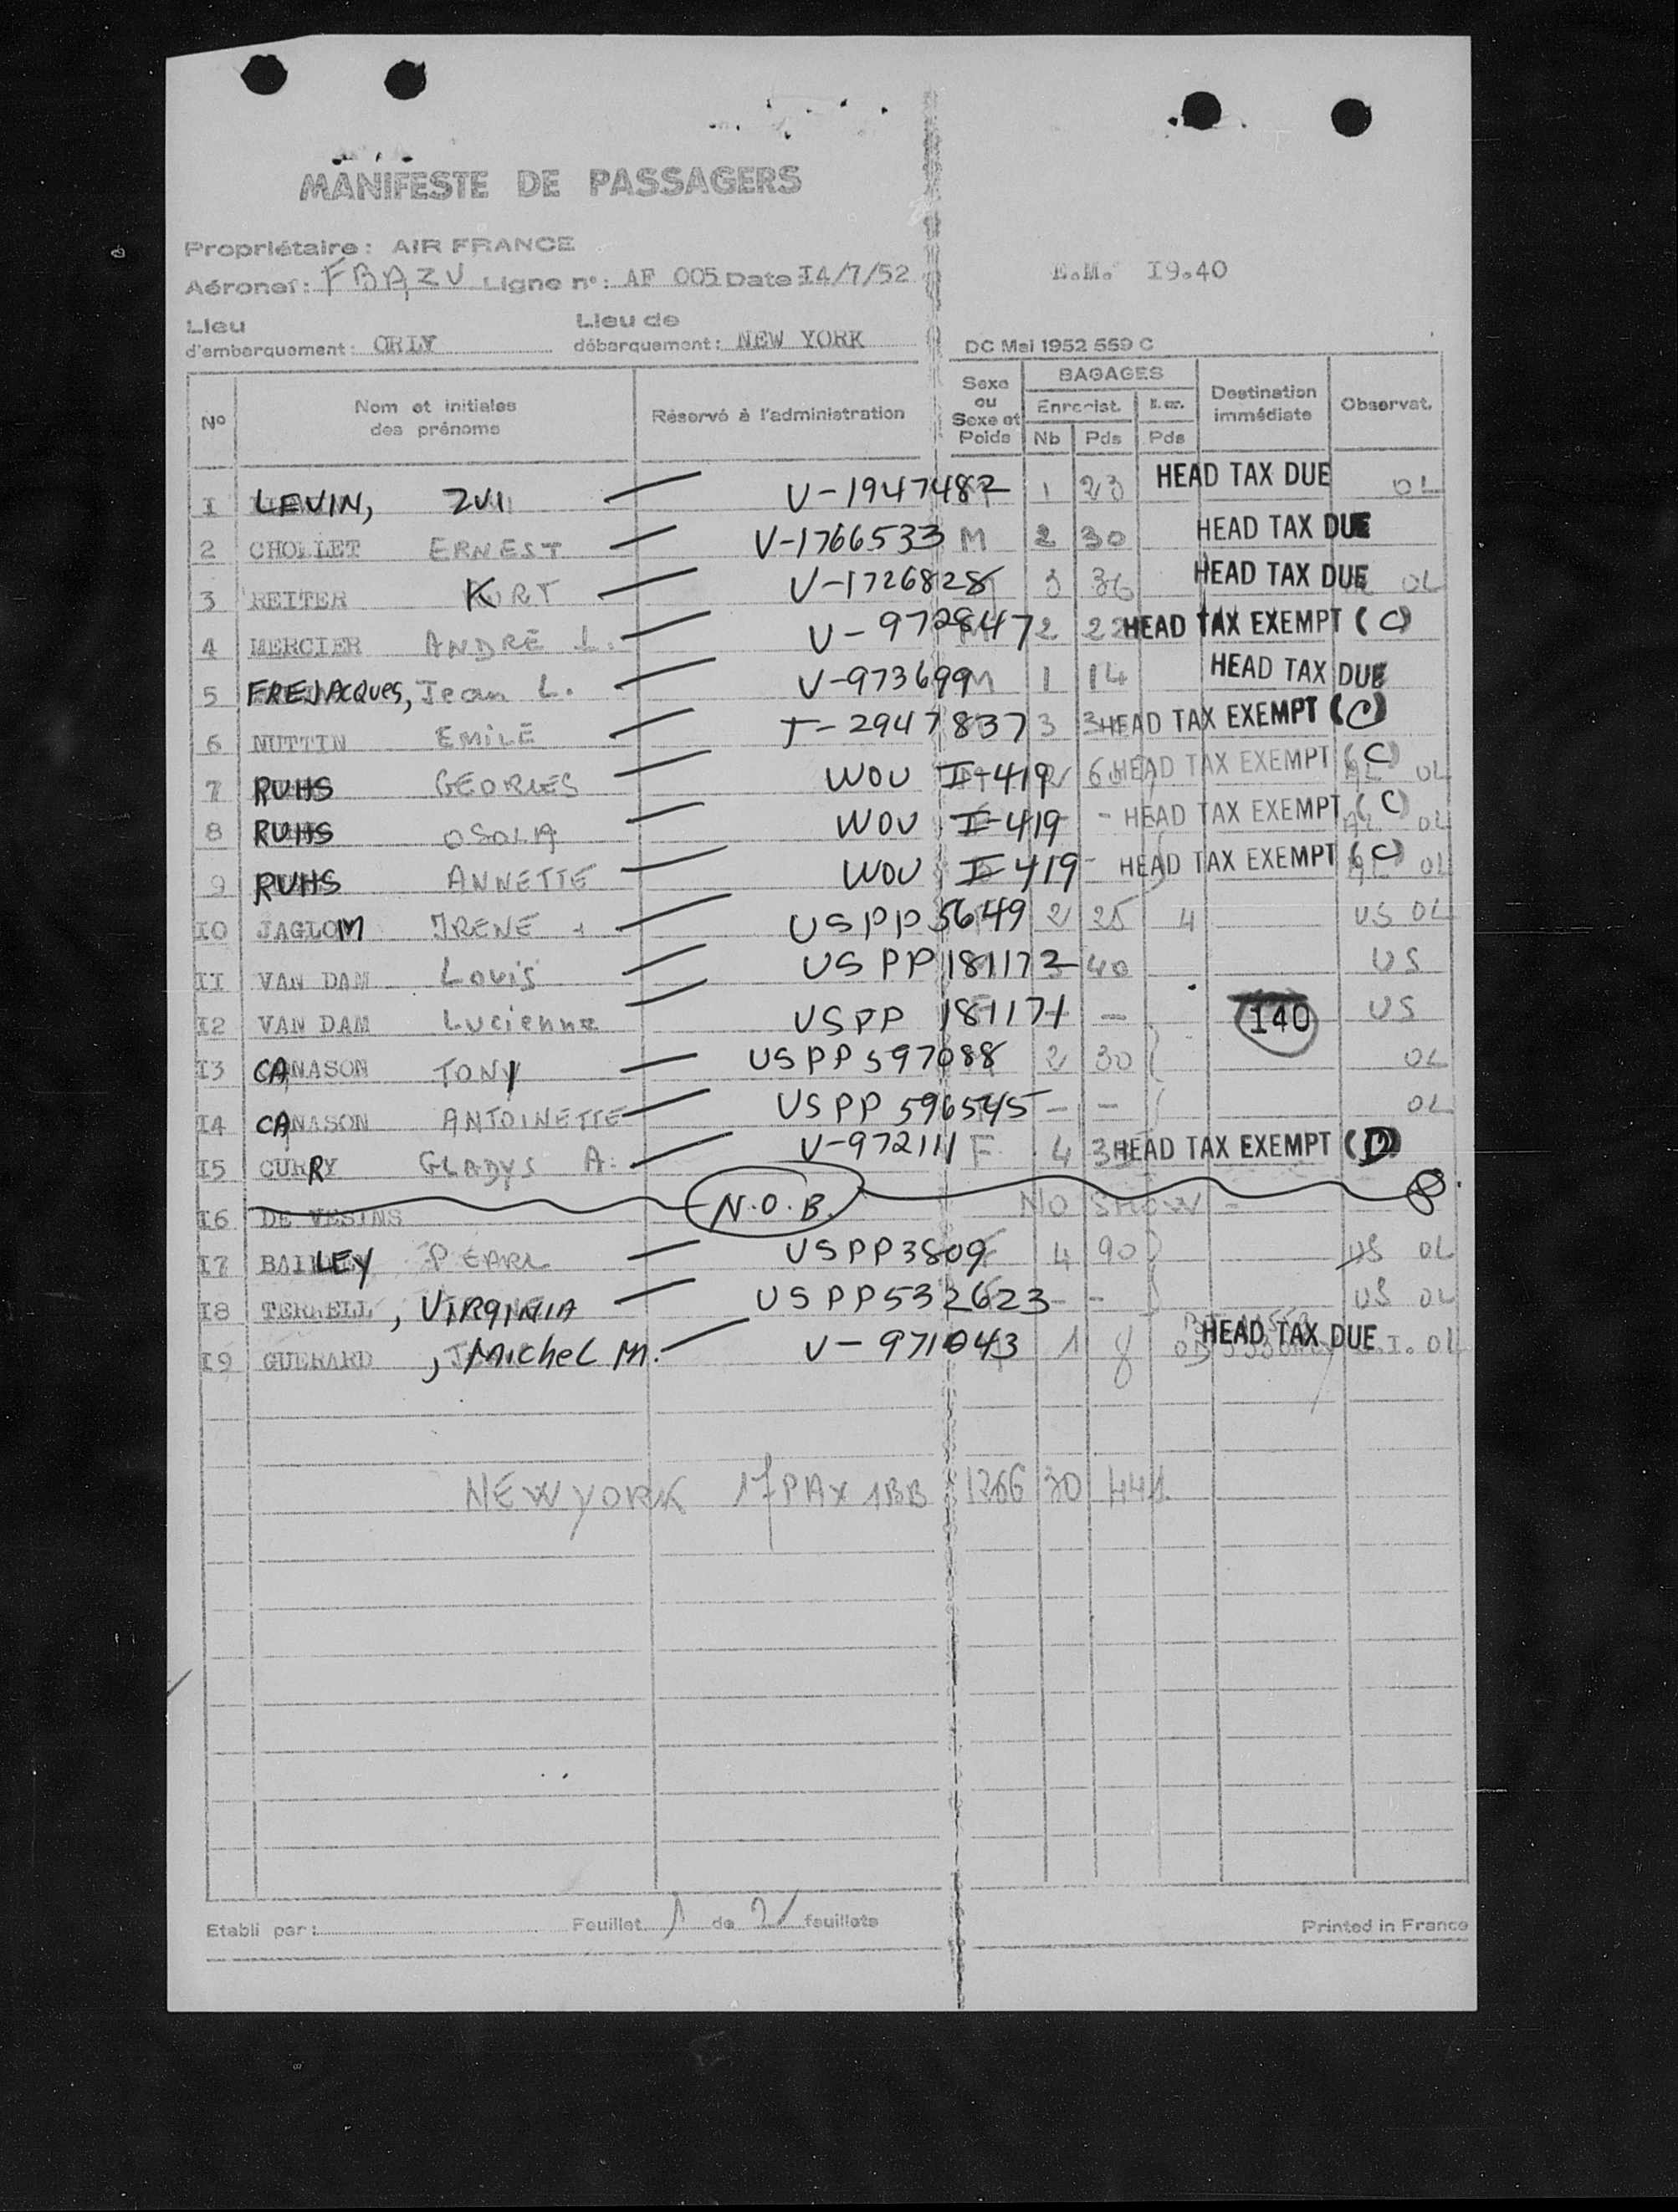 MANIFESTE DE PASSAGERS
Propriétaire: AIR FRANCE
Aéronef: FBAZU Ligne n°: AF 005 Date I4/7/52 E.M. I9.40
Lieu d'embarquement: ORLY Lieu de débarquement: NEW YORK
DC Mai 1952 559 C
N° Nom et initiales des prénoms Réservé à l'administration Sexe ou Sexe et Poids BAGAGES Enregist. Nb Pds Pds Destination immédiate Observat.
I LEVIN, ZVI V-1947482 1 23 HEAD TAX DUE OL
2 CHOLLET ERNEST V-1766533 M 2 30 HEAD TAX DUE
3 REITER KURT V-1726828 3 36 HEAD TAX DUE OL
4 MERCIER ANDRÉ L. V-972847 2 22 HEAD TAX EXEMPT (C)
5 FREJACQUES, Jean L. V-973699 M 1 14 HEAD TAX DUE
6 NUTTIN EMILE T-2947837 3 HEAD TAX EXEMPT (C)
7 RUHS GEORGES WOU I-419 2 HEAD TAX EXEMPT (C) AL OL
8 RUHS WOU I-419 - HEAD TAX EXEMPT (C) AL OL
9 RUHS ANNETTE WOU I-419 - HEAD TAX EXEMPT (C) AL OL
I0 JAGLOM IRENE USPP 5649 2 25 4 US OL
II VAN DAM Louis US PP 181172 40 US
I2 VAN DAM Lucienne USPP 181171 - 140 US
I3 CANASON TONY USPP 597088 2 30 OL
I4 CANASON ANTOINETTE USPP 596545 - - OL
I5 CURRY GLADYS A. V-972111 F 4 HEAD TAX EXEMPT (D)
I6 DE VESINS N.O.B. NO SHOW -
I7 BAILEY PEARL USPP 3809 F 4 90 US OL
I8 TERRELL, VIRGINIA USPP 532623 - - US OL
I9 GUERARD, Michel M. V-971043 1 8 HEAD TAX DUE I. OL
NEW YORK 17 PAX 1BB 1266 30 441
Etabli par: Feuillet 1 de 2 feuillets Printed in France